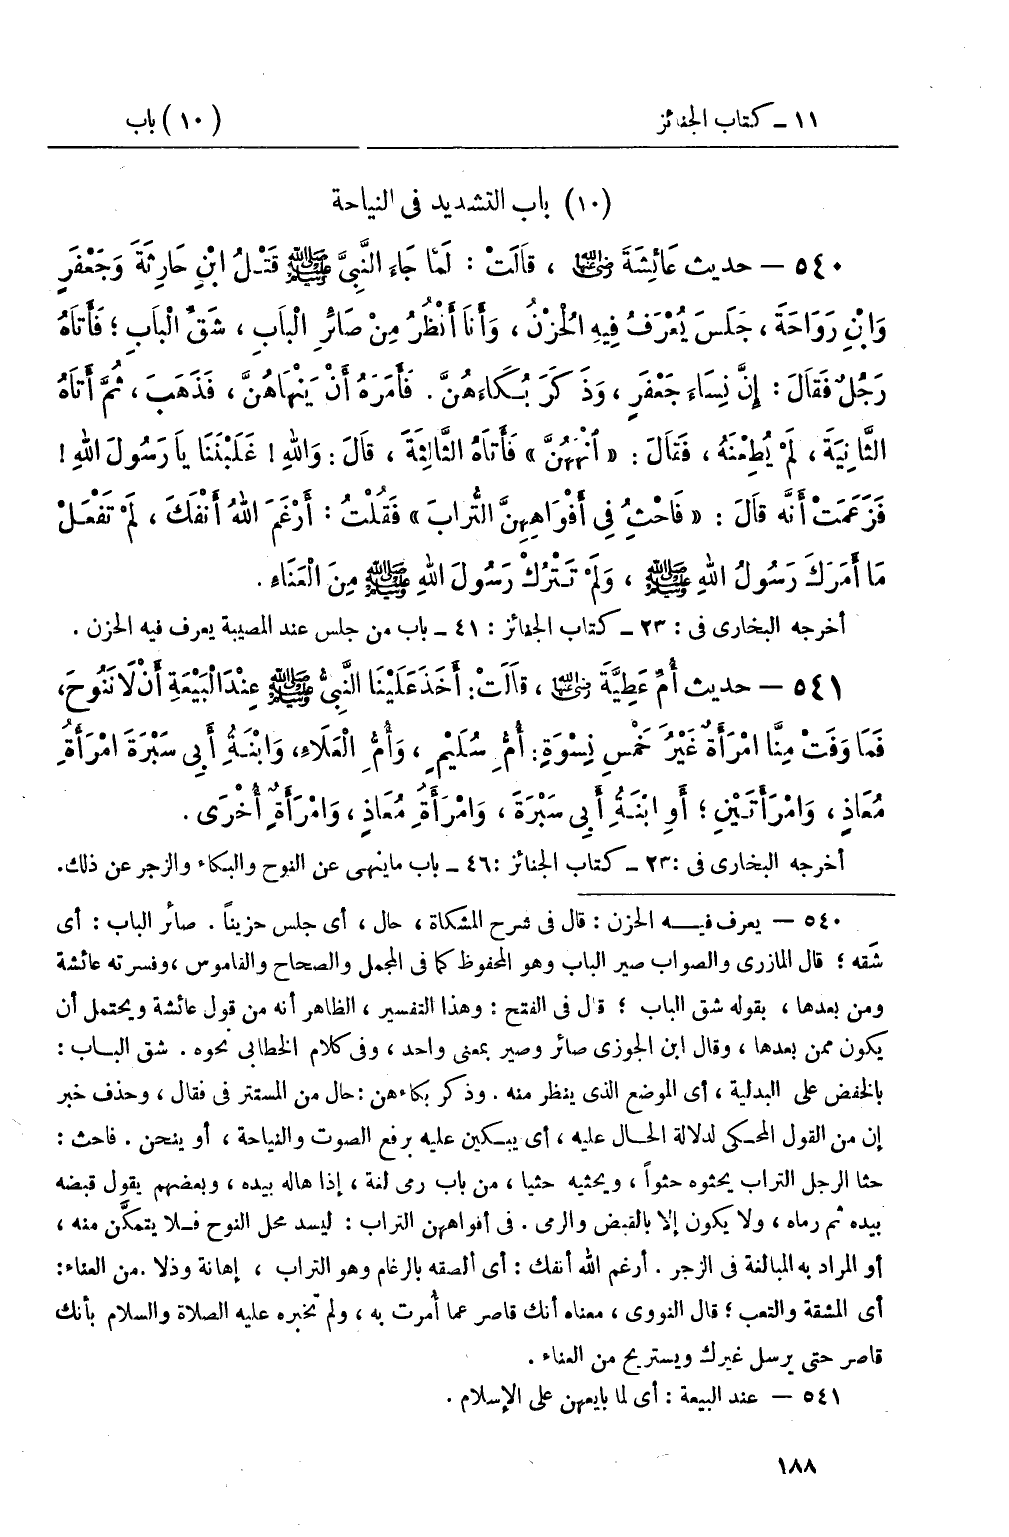 ١١ ـ كتاب الجنائز
(١٠) باب
(١٠) باب التشديد فى النياحة
٥٤٠ — حديث عَائِشَةَ رضي الله عنها ، قَالَتْ : لَمَّا جَاءَ النَّبِىَّ ﷺ قَتْلُ ابْنِ حَارِثَةَ وَجَعْفَرٍ
وَابْنِ رَوَاحَةَ ، جَلَسَ يُعْرَفُ فِيهِ الْحُزْنُ ، وَأَنَا أَنْظُرُ مِنْ صَائِرِ الْبَابِ ، شَقِّ الْبَابِ ؛ فَأَتَاهُ
رَجُلٌ فَقَالَ : إِنَّ نِسَاءَ جَعْفَرٍ ، وَذَكَرَ بُكَاءَهُنَّ . فَأَمَرَهُ أَنْ يَنْهَاهُنَّ ، فَذَهَبَ ، ثُمَّ أَتَاهُ
الثَّانِيَةَ ، لَمْ يُطِعْنَهُ ، فَقَالَ : « انْهَهُنَّ » فَأَتَاهُ الثَّالِثَةَ ، قَالَ : وَاللهِ ! غَلَبْنَنَا يَا رَسُولَ اللهِ !
فَزَعَمَتْ أَنَّه قَالَ : « فَاحْثُ فِى أَفْوَاهِهِنَّ التُّرَابَ » فَقُلْتُ : أَرْغَمَ اللهُ أَنْفَكَ ، لَمْ تَفْعَلْ
مَا أَمَرَكَ رَسُولُ اللهِ ﷺ ، وَلَمْ تَتْرُكْ رَسُولَ اللهِ ﷺ مِنَ الْعَنَاءِ .
أخرجه البخارى فى : ٢٣ ـ كتاب الجنائز : ٤١ ـ باب من جلس عند المصيبة يعرف فيه الحزن .
٥٤١ — حديث أُمِّ عَطِيَّةَ رضي الله عنها ، قَالَتْ : أَخَذَ عَلَيْنَا النَّبِىُّ ﷺ عِنْدَ الْبَيْعَةِ أَنْ لَا نَنُوحَ ،
فَمَا وَفَتْ مِنَّا امْرَأَةٌ غَيْرُ خَمْسِ نِسْوَةٍ : أُمُّ سُلَيْمٍ ، وَأُمُّ الْعَلَاءِ ، وَابْنَةُ أَبِى سَبْرَةَ امْرَأَةُ
مُعَاذٍ ، وَامْرَأَتَيْنِ ؛ أَوِ ابْنَةُ أَبِى سَبْرَةَ ، وَامْرَأَةُ مُعَاذٍ ، وَامْرَأَةٌ أُخْرَى .
أخرجه البخارى فى : ٢٣ ـ كتاب الجنائز : ٤٦ ـ باب ماينهى عن النوح والبكاء والزجر عن ذلك .
٥٤٠ — يعرف فيه الحزن : قال فى شرح المشكاة ، حال ، أى جلس حزيناً . صائر الباب : أى
شقه ؛ قال المازرى والصواب صير الباب وهو المحفوظ كما فى المجمل والصحاح والقاموس ، وفسرته عائشة
ومن بعدها ، بقوله شق الباب ؛ قال فى الفتح : وهذا التفسير ، الظاهر أنه من قول عائشة ويحتمل أن
يكون ممن بعدها ، وقال ابن الجوزى صائر وصير بمعنى واحد ، وفى كلام الخطابى نحوه . شق الباب :
بالخفض على البدلية ، أى الموضع الذى ينظر منه . وذكر بكاءهن : حال من المستتر فى فقال ، وحذف خبر
إن من القول المحكى لدلالة الحال عليه ، أى يبكين عليه برفع الصوت والنياحة ، أو ينحن . فاحث :
حثا الرجل التراب يحثوه حثواً ، ويحثيه حثيا ، من باب رمى لغة ، إذا هاله بيده ، وبعضهم يقول قبضه
بيده ثم رماه ، ولا يكون إلا بالقبض والرمى . فى أفواههن التراب : ليسد محل النوح فلا يتمكَّن منه ،
أو المراد به المبالغة فى الزجر . أرغم الله أنفك : أى ألصقه بالرغام وهو التراب ، إهانة وذلا . من العناء :
أى المشقة والتعب ؛ قال النووى ، معناه أنك قاصر عما أُمرت به ، ولم تخبره عليه الصلاة والسلام بأنك
قاصر حتى يرسل غيرك ويستريح من العناء .
٥٤١ — عند البيعة : أى لما بايعهن على الإسلام .
١٨٨